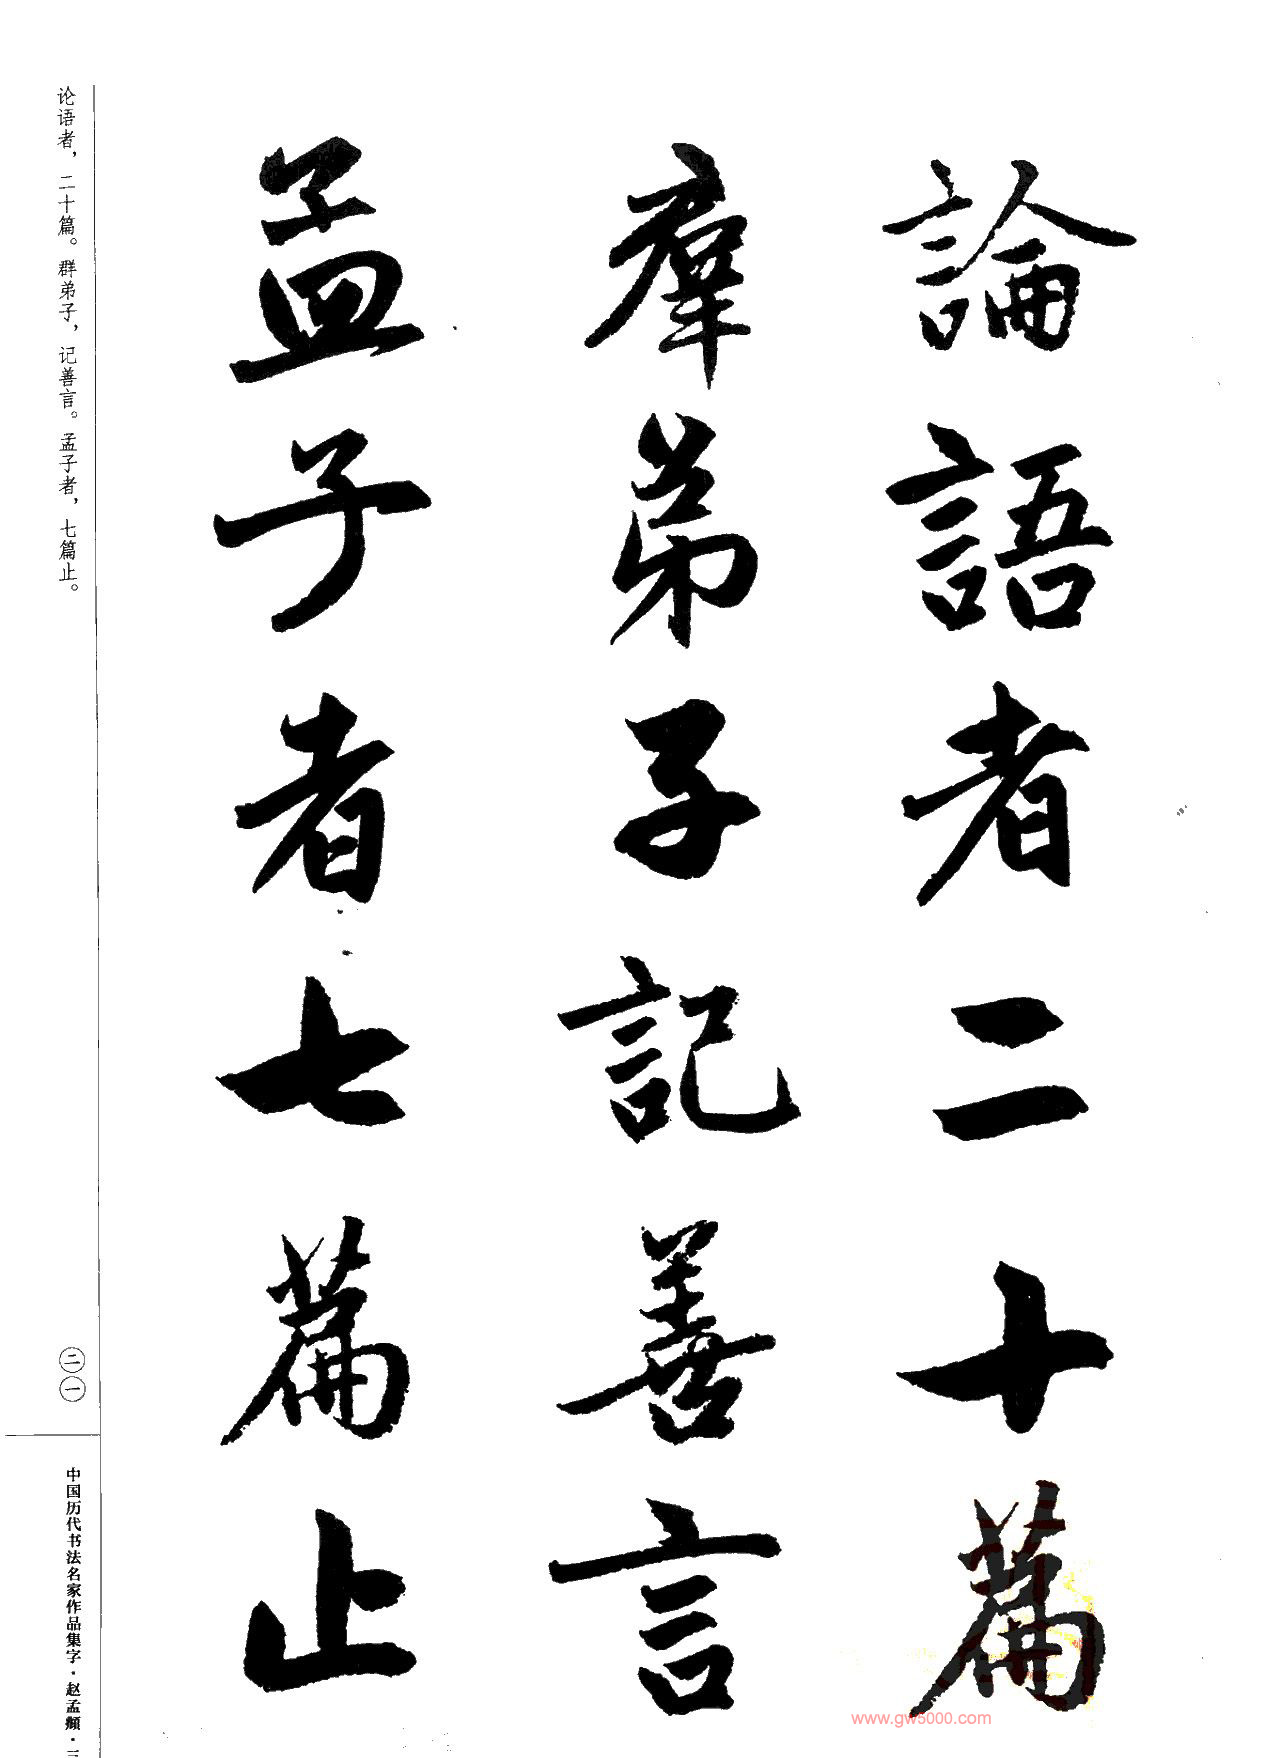 論語者二十篇
羣弟子記善言
孟子者七篇止
论语者，二十篇。群弟子，记善言。孟子者，七篇止。
二一
中国历代书法名家作品集字·赵孟頫·三
www.gw5000.com